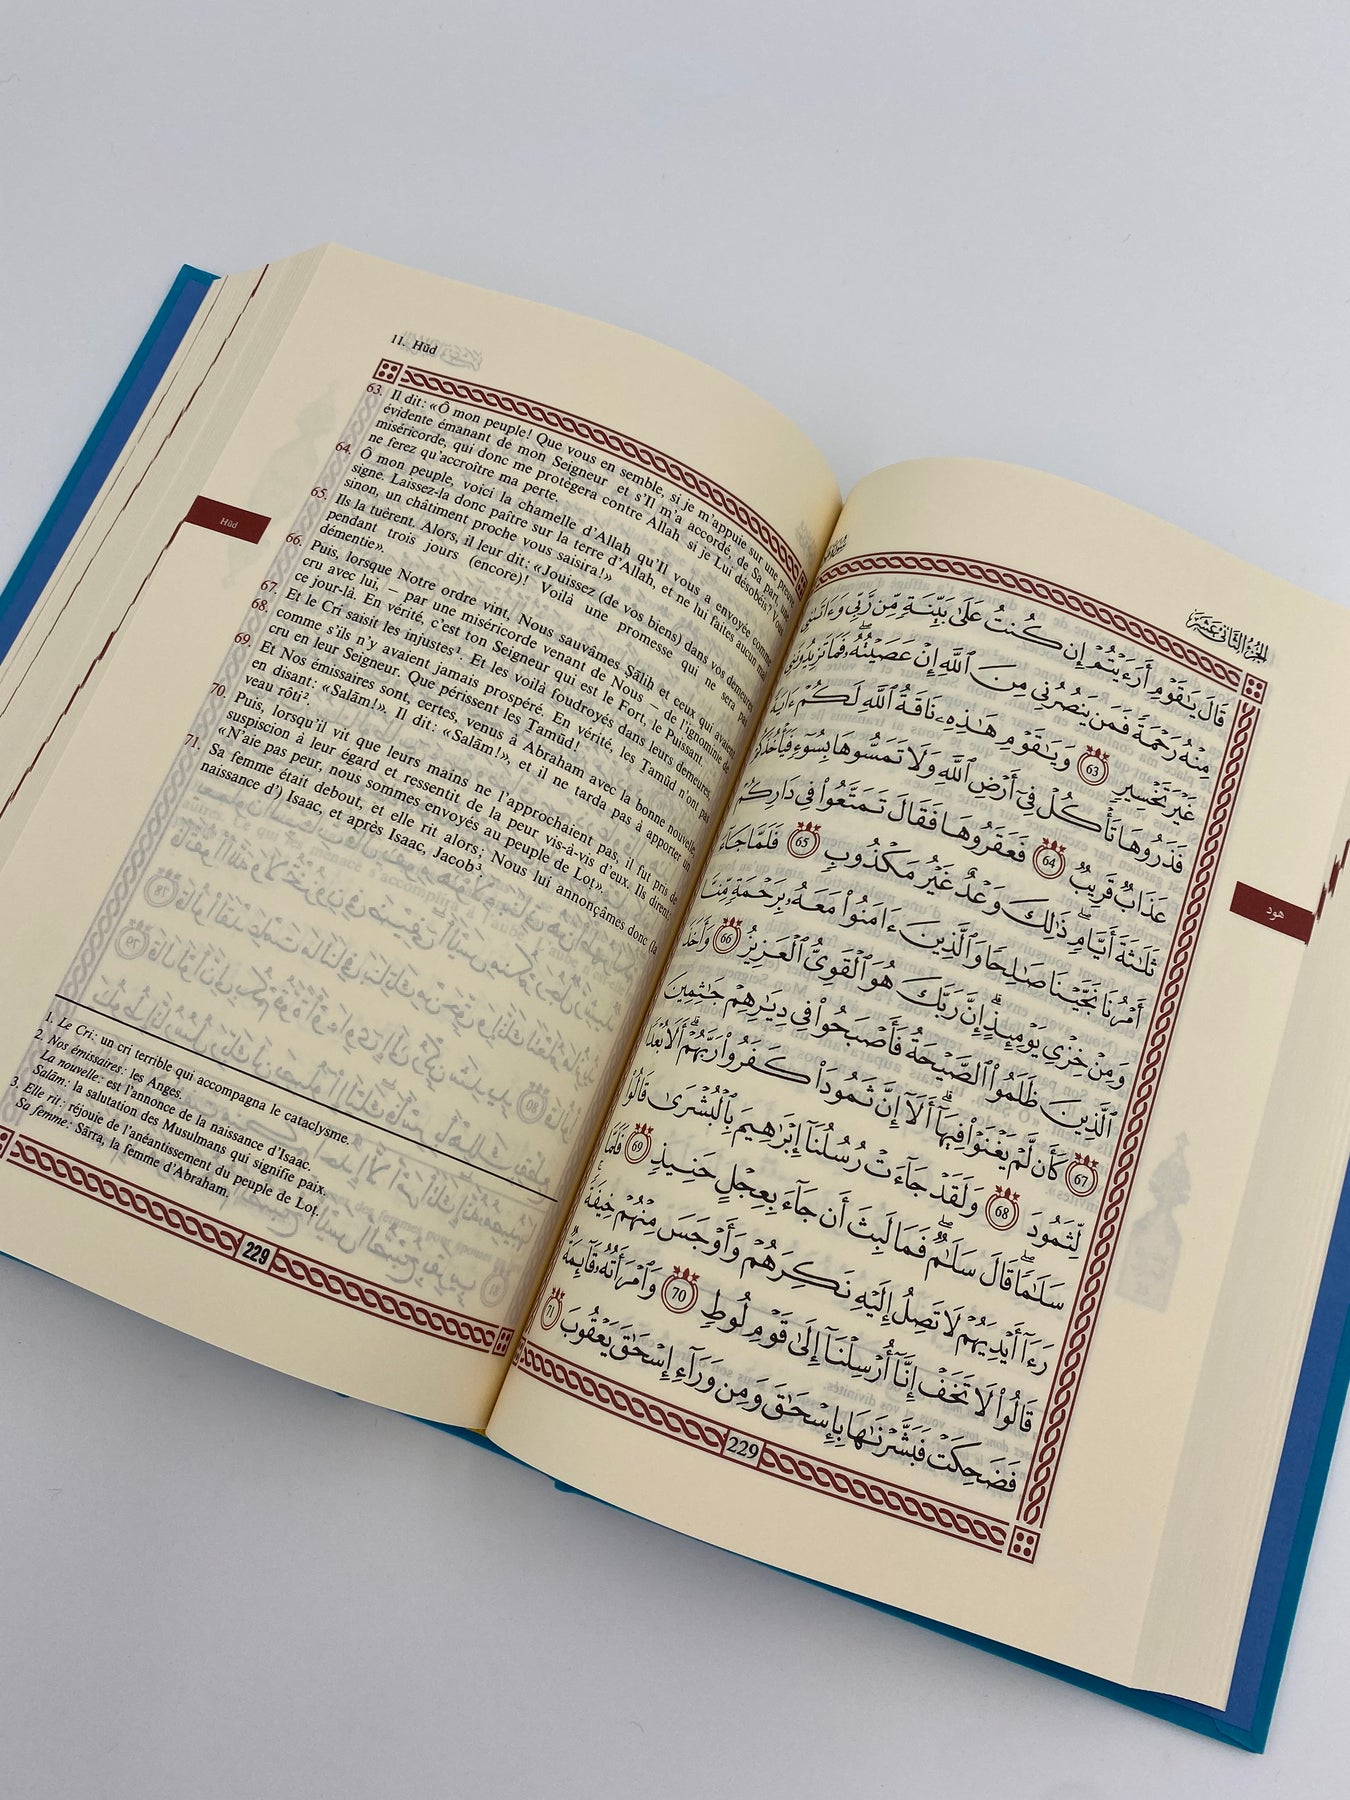 11. Hūd
63. Il dit: «Ô mon peuple! Que vous en semble, si je m'appuie sur une preuve
évidente émanant de mon Seigneur et s'Il m'a accordé, de Sa part, une
miséricorde, qui donc me protègera contre Allah si je Lui désobéis? Vous
ne ferez qu'accroître ma perte.
64. Ô mon peuple, voici la chamelle d'Allah qu'Il vous a envoyée comme
signe. Laissez-la donc paître sur la terre d'Allah, et ne lui faites aucun mal
sinon, un châtiment proche vous saisira!»
65. Ils la tuèrent. Alors, il leur dit: «Jouissez (de vos biens) dans vos demeures
pendant trois jours (encore)! Voilà une promesse qui ne sera pas
démentie».
66. Puis, lorsque Notre ordre vint, Nous sauvâmes Ṣāliḥ et ceux qui avaient
cru avec lui, – par une miséricorde venant de Nous – de l'ignominie de
ce jour-là. En vérité, c'est ton Seigneur qui est le Fort, le Puissant.
67. Et le Cri saisit les injustes¹. Et les voilà foudroyés dans leurs demeures,
68. comme s'ils n'y avaient jamais prospéré. En vérité, les Ṯamūd n'ont pas
cru en leur Seigneur. Que périssent les Ṯamūd!
69. Et Nos émissaires sont, certes, venus à Abraham avec la bonne nouvelle,
en disant: «Salām!». Il dit: «Salām!», et il ne tarda pas à apporter un
veau rôti².
70. Puis, lorsqu'il vit que leurs mains ne l'approchaient pas, il fut pris de
suspiscion à leur égard et ressentit de la peur vis-à-vis d'eux. Ils dirent:
«N'aie pas peur, nous sommes envoyés au peuple de Loṭ».
71. Sa femme était debout, et elle rit alors; Nous lui annonçâmes donc (la
naissance d') Isaac, et après Isaac, Jacob³.
1. Le Cri: un cri terrible qui accompagna le cataclysme.
2. Nos émissaires: les Anges.
La nouvelle: est l'annonce de la naissance d'Isaac.
Salām: la salutation des Musulmans qui signifie paix.
3. Elle rit: réjouie de l'anéantissement du peuple de Loṭ.
Sa femme: Sārra, la femme d'Abraham.
229
Hūd
الجزء الثاني عشر
قَالَ يَٰقَوْمِ أَرَءَيْتُمْ إِن كُنتُ عَلَىٰ بَيِّنَةٍ مِّن رَّبِّي وَءَاتَىٰنِي
مِنْهُ رَحْمَةً فَمَن يَنصُرُنِي مِنَ ٱللَّهِ إِنْ عَصَيْتُهُۥ فَمَا تَزِيدُونَنِي
غَيْرَ تَخْسِيرٍ 63 وَيَٰقَوْمِ هَٰذِهِۦ نَاقَةُ ٱللَّهِ لَكُمْ ءَايَةً
فَذَرُوهَا تَأْكُلْ فِيٓ أَرْضِ ٱللَّهِ وَلَا تَمَسُّوهَا بِسُوٓءٍ فَيَأْخُذَكُمْ
عَذَابٌ قَرِيبٌ 64 فَعَقَرُوهَا فَقَالَ تَمَتَّعُوا۟ فِي دَارِكُمْ
ثَلَٰثَةَ أَيَّامٍ ذَٰلِكَ وَعْدٌ غَيْرُ مَكْذُوبٍ 65 فَلَمَّا جَآءَ
أَمْرُنَا نَجَّيْنَا صَٰلِحًا وَٱلَّذِينَ ءَامَنُوا۟ مَعَهُۥ بِرَحْمَةٍ مِّنَّا
وَمِنْ خِزْيِ يَوْمِئِذٍ إِنَّ رَبَّكَ هُوَ ٱلْقَوِيُّ ٱلْعَزِيزُ 66 وَأَخَذَ
ٱلَّذِينَ ظَلَمُوا۟ ٱلصَّيْحَةُ فَأَصْبَحُوا۟ فِي دِيَٰرِهِمْ جَٰثِمِينَ
67 كَأَن لَّمْ يَغْنَوْا۟ فِيهَآ أَلَآ إِنَّ ثَمُودَا۟ كَفَرُوا۟ رَبَّهُمْ أَلَا بُعْدًا
لِّثَمُودَ 68 وَلَقَدْ جَآءَتْ رُسُلُنَآ إِبْرَٰهِيمَ بِٱلْبُشْرَىٰ قَالُوا۟
سَلَٰمًا قَالَ سَلَٰمٌ فَمَا لَبِثَ أَن جَآءَ بِعِجْلٍ حَنِيذٍ 69 فَلَمَّا
رَءَآ أَيْدِيَهُمْ لَا تَصِلُ إِلَيْهِ نَكِرَهُمْ وَأَوْجَسَ مِنْهُمْ خِيفَةً
قَالُوا۟ لَا تَخَفْ إِنَّآ أُرْسِلْنَآ إِلَىٰ قَوْمِ لُوطٍ 70 وَٱمْرَأَتُهُۥ قَآئِمَةٌ
فَضَحِكَتْ فَبَشَّرْنَٰهَا بِإِسْحَٰقَ وَمِن وَرَآءِ إِسْحَٰقَ يَعْقُوبَ 71
229
هود